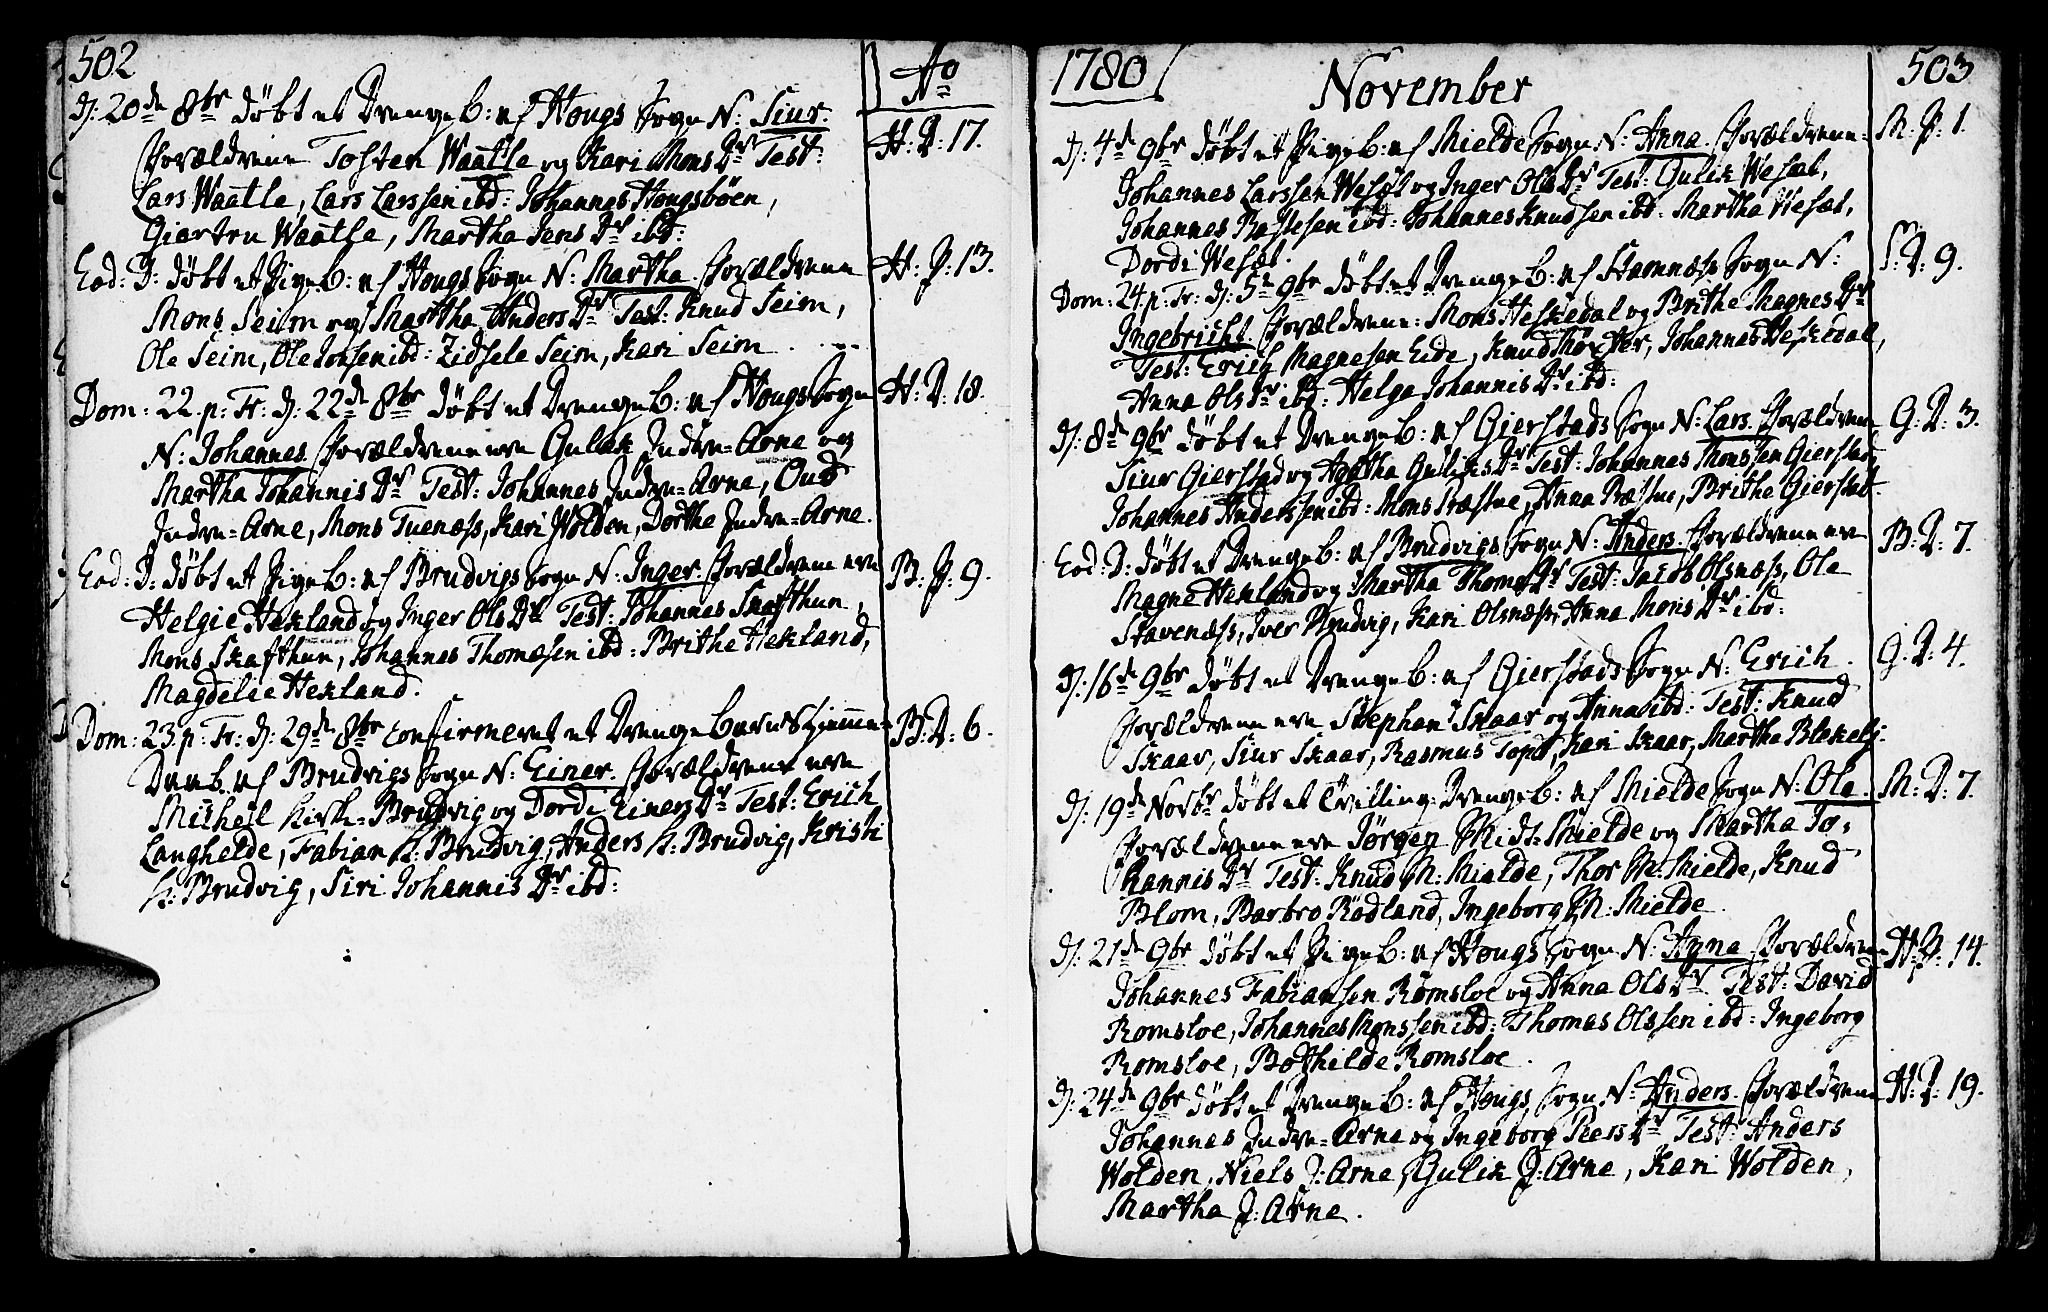 502
Ao
d: 20de 8br döbt et Drenge B: af Hougs Sogn N: Siur.
H: D: 17.
Forældrene Tosten Waatle og Kari Mons Dr Test:
Lars Waatle, Lars Larssen ibd: Johannes Hougsböen,
Giertru Waatle, Martha Jens Dr ibd:
Eod: D: döbt et Pige B: af Hougs Sogn N: Martha. Forældrene
H: P: 13.
Mons Seim og Martha Anders Dr Test: Knud Seim,
Ole Seim, Ole Jonsen ibd: Zidsele Seim, Kari Seim
Dom: 22. p: Tr: d: 22de 8br döbt et Drenge B: af Hougs Sogn
H: D: 18.
N: Johannes. Forældrene ere Gulak Indre-Arne og
Martha Johannis Dr Test: Johannes Indre-Arne, Oud
Indre-Arne, Mons Tuenæss, Kari Wolden, Dorthe Indre-Arne.
Eod: D: döbt et Pige B: af Brudvigs Sogn N: Inger. Forældrene ere
B: P: 9.
Helgie Hekland og Inger Ols Dr Test: Johannes Skafthun,
Mons Skafthun, Johannes Thomæsen ibd: Brithe Hekland,
Magdelie Hekland.
Dom: 23. p: Tr: d: 29de 8br confirmeret et Drenge Barns Hjemme-
B: D: 6.
Daab af Brudvigs Sogn N: Einer. Forældrene ere
Michel Kirke-Brudvig og Dordi Einers Dr Test: Erich
Langhelde, Fabian K: Brudvig, Anders K: Brudvig, Kristi
K: Brudvig, Siri Johannis Dr ibd:
1780
November
503
d: 4de 9br döbt et Pige B: af Mielde Sogn N: Anna. Forældrene:
M: P: 1.
Johannes Larssen Wesæt og Inger Ols Dr Test: Gulik Wesæt,
Johannes ibd: Johannes Knudsen ibd: Martha Wesæt,
Dordi Wesæt.
Dom: 24. p: Tr: d: 5te 9br döbt et Drenge B: af Stamnæss Sogn N:
S: D: 9.
Ingebricht. Forældrene: Mons Heskedal og Brithe Magnes Dr
Test: Erich Magnesen Eide, Knud, Johannes Heskedal,
Anna Ols Dr ibd: Helga Johannis Dr ibd:
d: 8de 9br döbt et Drenge B: af Gierstads Sogn N: Lars. Forældrene
G: D: 3.
Siur Gierstad og Agatha Guliks Dr Test: Johannes Monssen Gierstad,
Johannes Anderssen ibd: Mons Ræstue, Anna Ræstue, Brithe Gierstad.
Eod: D: döbt et Drenge B: af Brudvigs Sogn N: Anders. Forældrene ere
B: D: 7.
Magne Hekland og Martha Thomes Dr Test: Jacob Olsnæss, Ole
Stavenæss, Iver Brudvig, Kari Olsnæss, Anna Mons Dr ibd:
d: 16de 9br döbt et Drenge B: af Gierstads Sogn N: Erich.
G: D: 4.
Forældrene ere Stephan Skaar og Anna ibd: Test: Knud
Skaar, Siur Skaar, Rasmus Topd, Kari Skaar, Martha Blekelj.
d: 19de Novbr döbt et Tvilling-Drenge B: af Mielde Sogn N: Ole.
M: D: 7.
Forældrene ere Jörgen Midt-Mielde og Martha Jo-
hannis Dr Test: Knud M: Mielde, Thor M: Mielde, Knud
Blom, Barbro Rödland, Ingeborg M: Mielde.
d: 21de 9br döbt et Pige B: af Hougs Sogn N: Anna. Forældrene
H: P: 14.
Johannes Fabiansen Romsloe og Anna Ols Dr Test: David
Romsloe, Johannes Monssen ibd: Thomas Olssen ibd: Ingeborg
Romsloe, Bothilde Romsloe.
d: 24de 9br döbt et Drenge B: af Hougs Sogn N: Anders. Forældrene
H: D: 19.
Johannes Indre-Arne og Ingeborg Peers Dr Test: Anders
Wolden, Niels J: Arne, Gulik J: Arne, Kari Wolden,
Martha J: Arne.